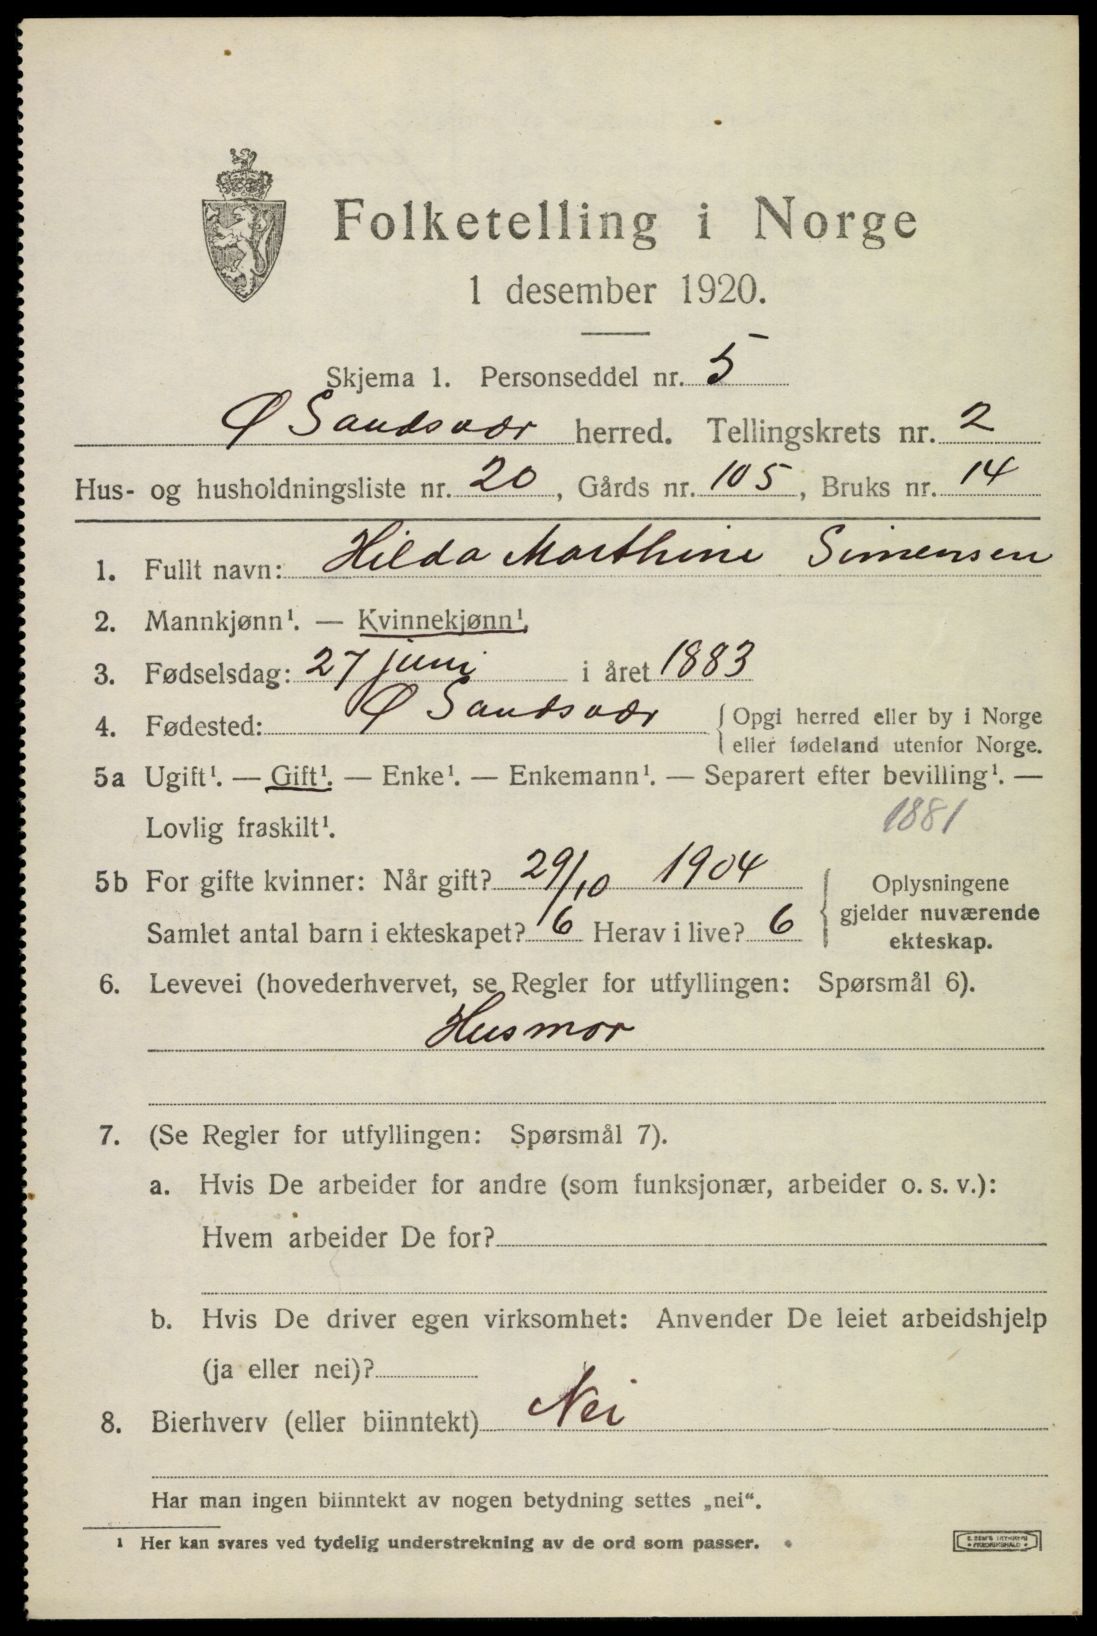 Folketelling i Norge
1 desember 1920.
Skjema 1. Personseddel nr. 5
Ø Sandsvær herred. Tellingskrets nr. 2
Hus- og husholdningsliste nr. 20, Gårds nr. 105, Bruks nr. 14
1. Fullt navn: Hilda Marthine Simensen
2. Mannkjønn¹. — Kvinnekjønn¹.
3. Fødselsdag: 27 juni i året 1883
4. Fødested: Ø Sandsvær { Opgi herred eller by i Norge
eller fødeland utenfor Norge.
5a Ugift¹. — Gift¹. — Enke¹. — Enkemann¹. — Separert efter bevilling¹. —
Lovlig fraskilt¹. 1881
5b For gifte kvinner: Når gift? 29/10 1904 { Oplysningene
gjelder nuværende
Samlet antal barn i ekteskapet? 6 Herav i live? 6
ekteskap.
6. Levevei (hovederhvervet, se Regler for utfyllingen: Spørsmål 6).
Husmor
7. (Se Regler for utfyllingen: Spørsmål 7).
a. Hvis De arbeider for andre (som funksjonær, arbeider o. s. v.):
Hvem arbeider De for?
b. Hvis De driver egen virksomhet: Anvender De leiet arbeidshjelp
(ja eller nei)?
8. Bierhverv (eller biinntekt) Nei
Har man ingen biinntekt av nogen betydning settes „nei“.
¹ Her kan svares ved tydelig understrekning av de ord som passer.